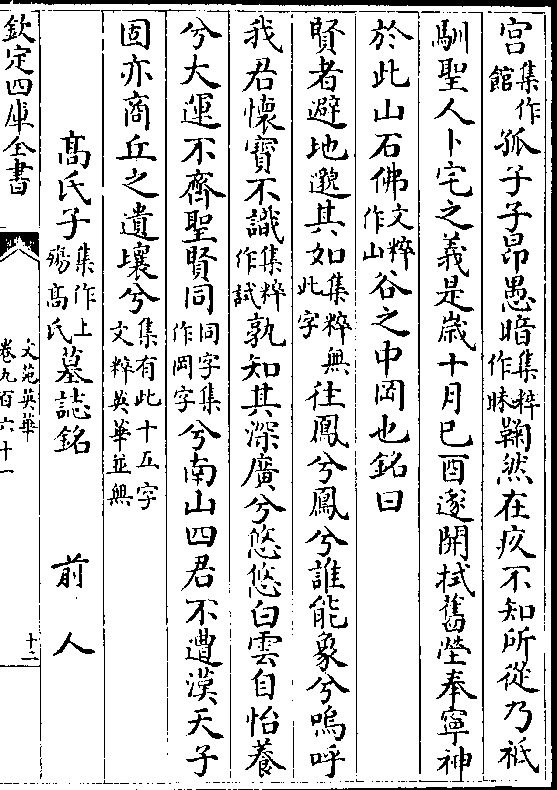 宫集作館孤子子昂愚暗集粹作昧鞠然在疚不知所從乃祗
馴聖人卜宅之義是歲十月已酉遂開拭舊塋奉寧神
於此山石佛文粹作山谷之中岡也銘曰
賢者避地邈其如集粹無此字往鳳兮鳳兮誰能象兮嗚呼
我君懷寳不識集粹作試孰知其深廣兮悠悠白雲自怡養
兮大運不齊聖賢同同字集作岡字兮南山四君不遭漢天子
固亦商丘之遺壤兮集有此十五字文粹英華並無
髙氏子集作上殤髙氏墓誌銘 前人
欽定四庫全書
文苑英華
卷九百六十一
十二